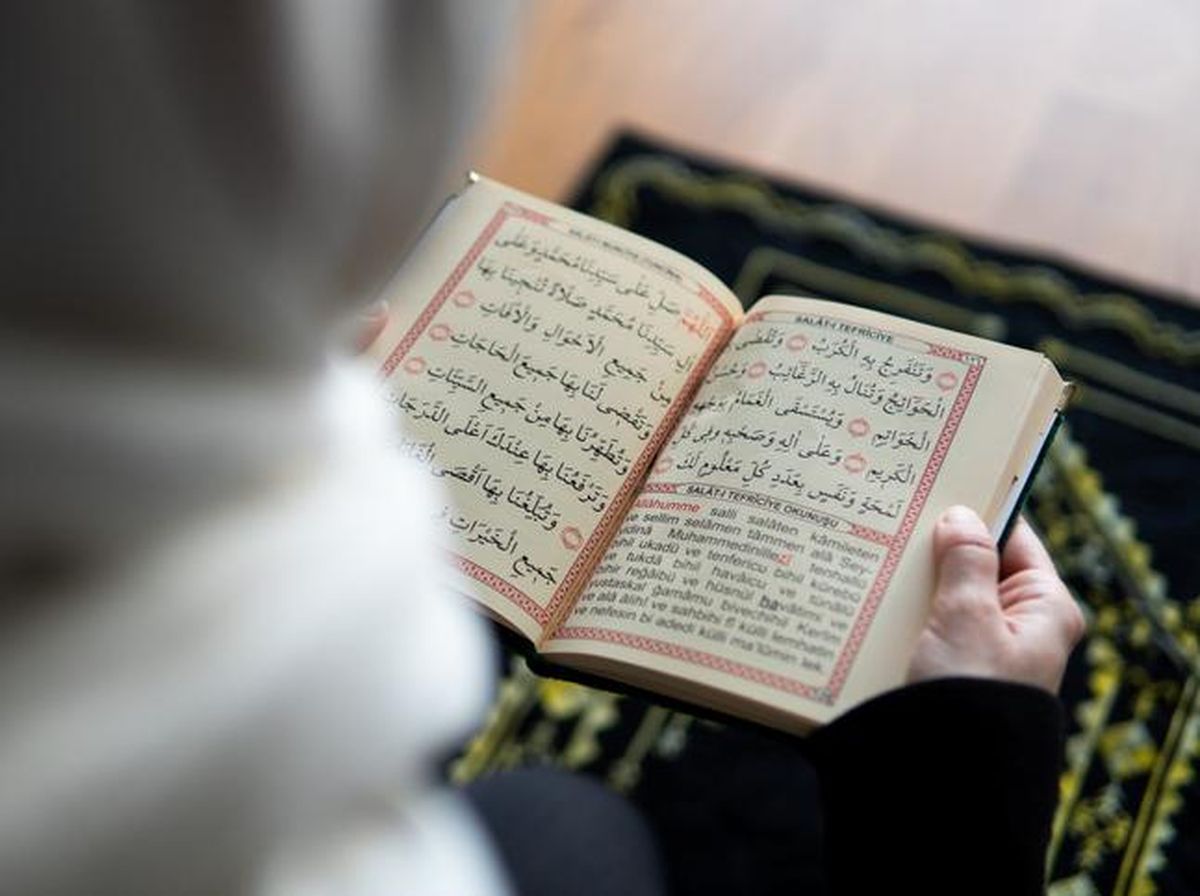 صَلِّ عَلَى سَيِّدِنَا مُحَمَّدٍ وَعَلَى
سَيِّدِنَا مُحَمَّدٍ صَلَاةً تُنْجِينَا بِهَا
مِنْ جَمِيعِ الْاَحْوَالِ وَالْاٰفَاتِ
وَتَقْضِى لَنَا بِهَا جَمِيعَ الْحَاجَاتِ
وَتُطَهِّرُنَا بِهَا مِنْ جَمِيعِ السَّيِّئَاتِ
وَتَرْفَعُنَا بِهَا عِنْدَكَ اَعْلَى الدَّرَجَاتِ
وَتُبَلِّغُنَا بِهَا اَقْصَى
جَمِيعِ الْخَيْرَاتِ
SALÂT-I TEFRİCİYE
وَتَنْفَرِجُ بِهِ الْكُرَبُ وَتُقْضَى
الْحَوَائِجُ وَتُنَالُ بِهِ الرَّغَائِبُ وَحُسْنُ
الْخَوَاتِمِ وَيُسْتَسْقَى الْغَمَامُ
الْكَرِيمِ وَعَلَى اٰلِهِ وَصَحْبِهِ فِى كُلِّ
لَمْحَةٍ وَنَفَسٍ بِعَدَدِ كُلِّ مَعْلُومٍ لَكَ
SALÂT-I TEFRİCİYE OKUNUŞU
salli salâten kâmileten
ve sellim selâmen tâmmen alâ Sey-
Muhammedinillezî tenhallü
bihil ukadü ve tenfericu bihil kürebü
ve tukdâ bihil havâicu ve tünâlü
bihir reğâibü ve hüsnül havâtimi ve
yustaskal ğamâmu bivechihil Kerîm
ve alâ âlihî ve sahbihî fî külli lemhatin
ve nefesin bi adedi külli ma'lûmin lek.